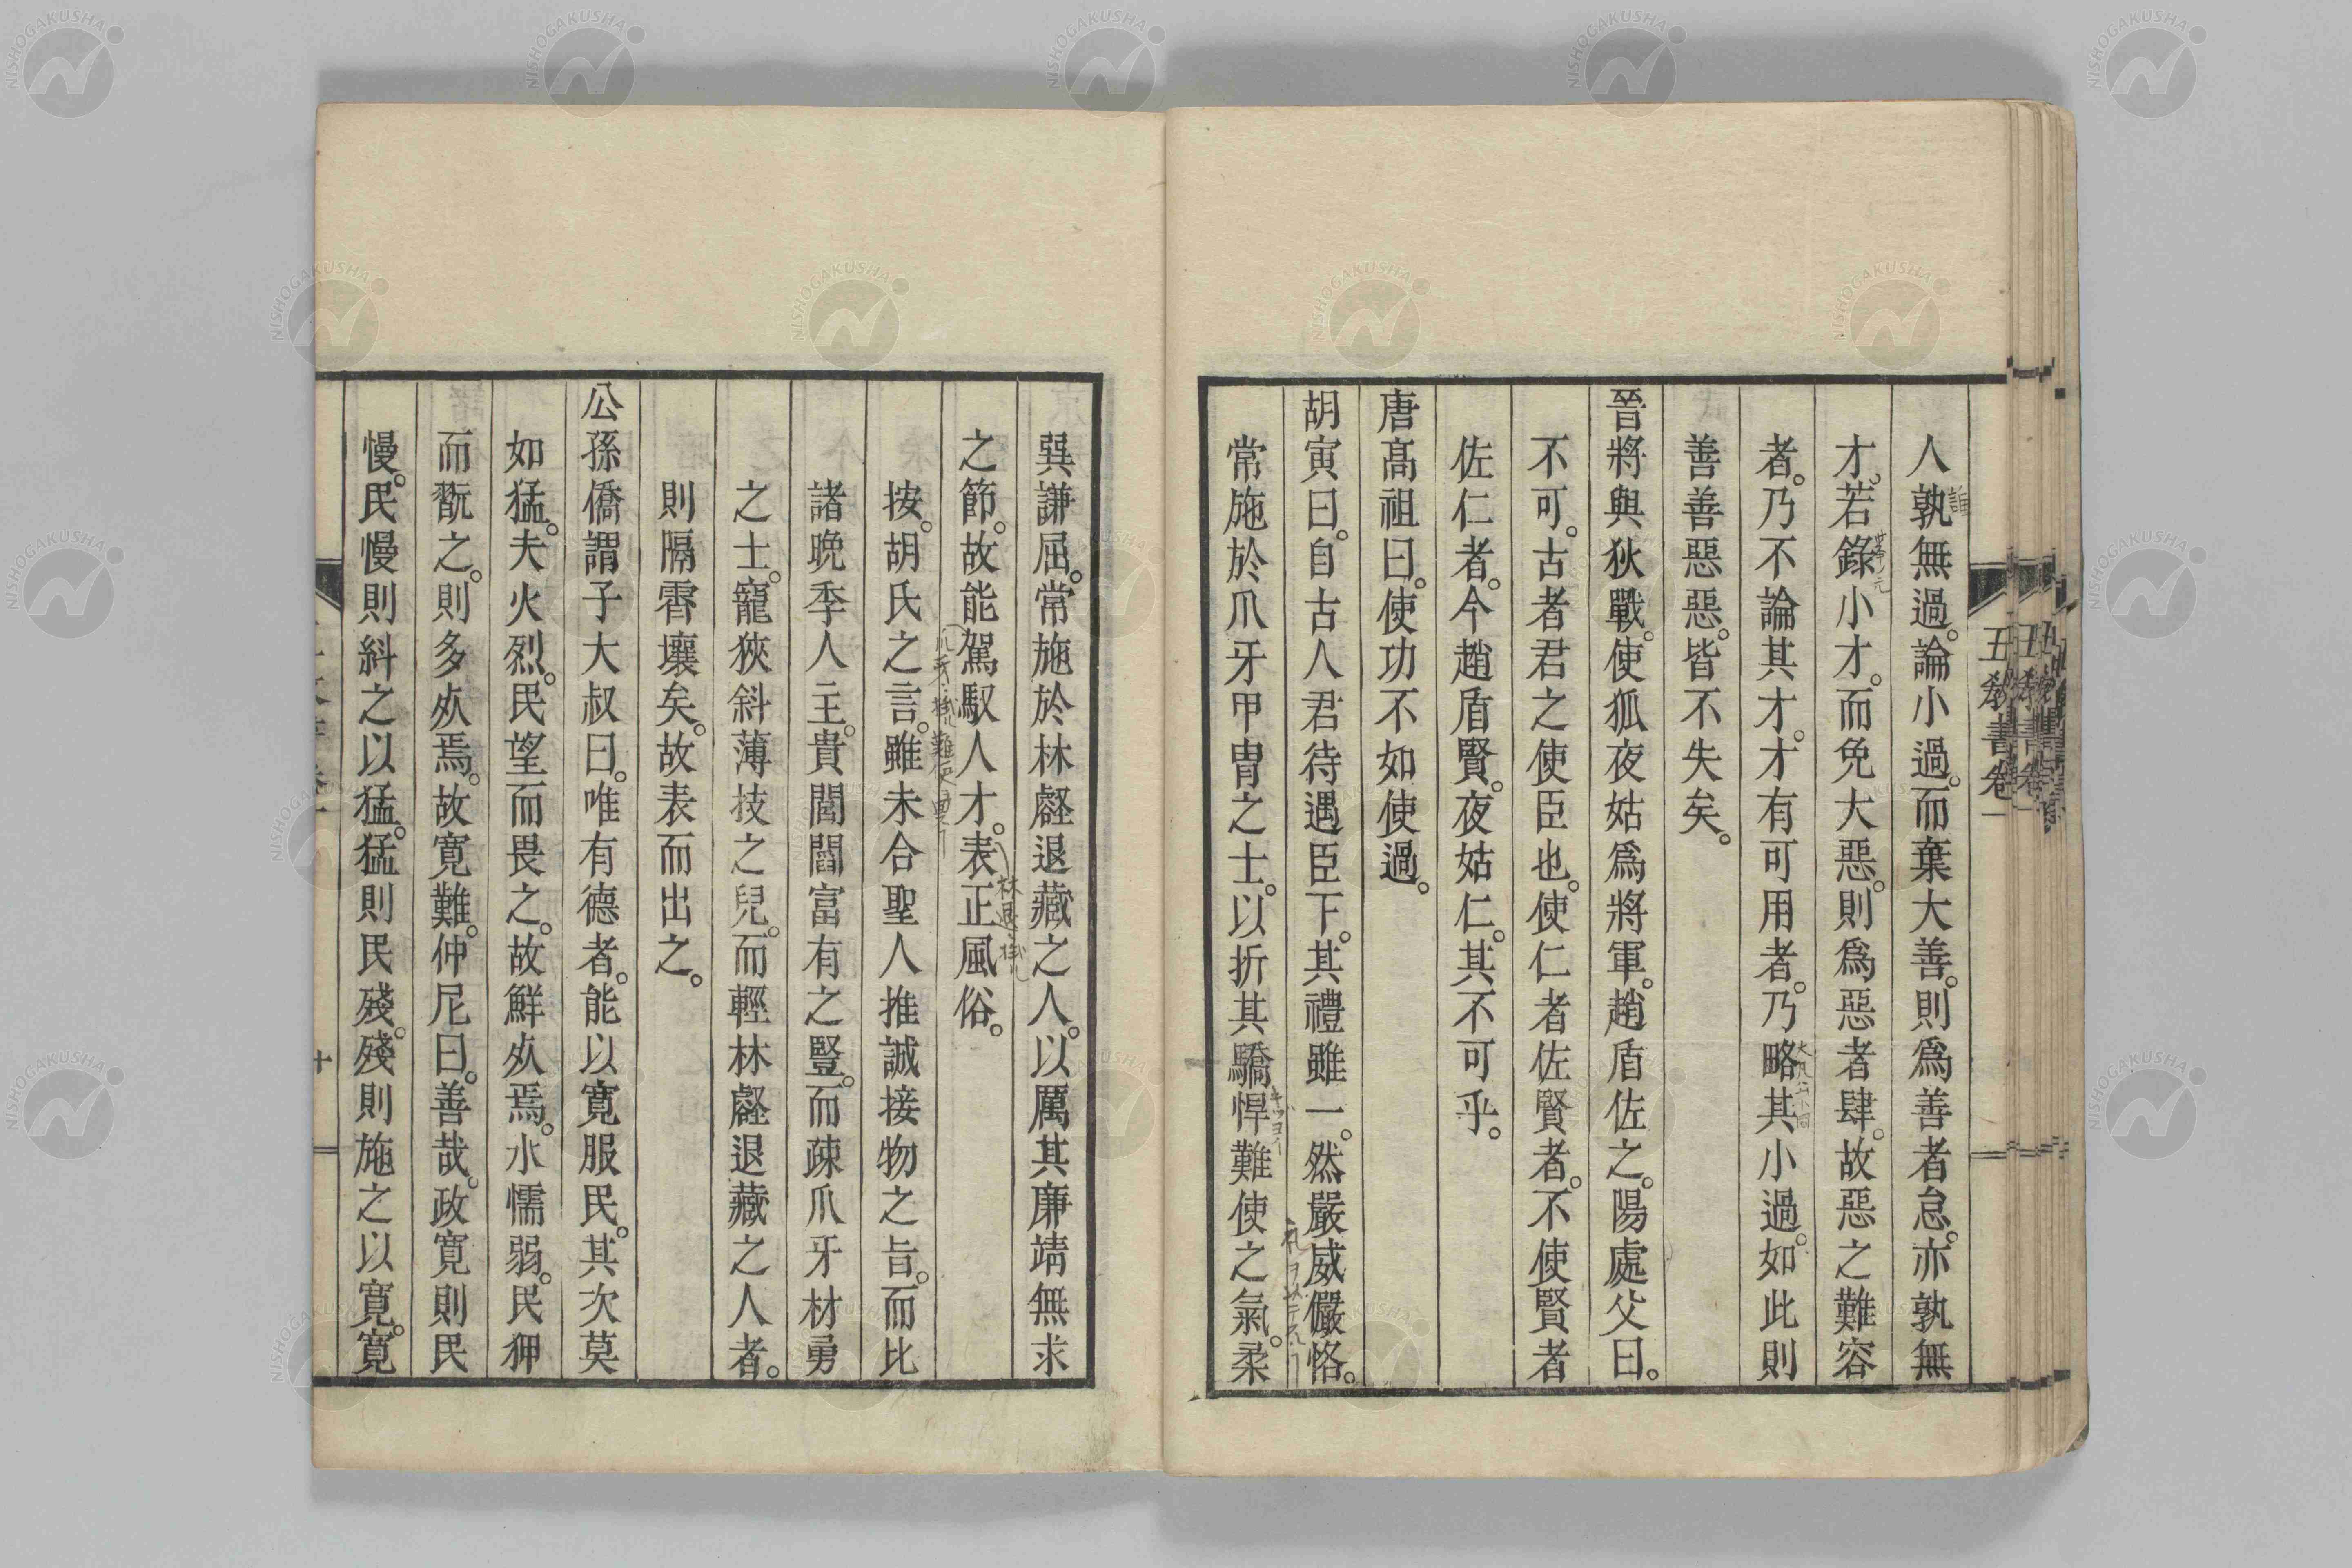 人孰無過。論小過。而棄大善。則爲善者怠。亦孰無
才。若錄小才。而免大惡。則爲惡者肆。故惡之難容
者。乃不論其才。才有可用者。乃略其小過。如此則
善善惡惡。皆不失矣。
晉將與狄戰。使狐夜姑爲將軍。趙盾佐之。陽處父曰。
不可。古者君之使臣也。使仁者佐賢者。不使賢者
佐仁者。今趙盾賢。夜姑仁。其不可乎。
唐髙祖曰。使功不如使過。
胡寅曰。自古人君待遇臣下。其禮雖一。然嚴威儼恪。
常施於爪牙甲冑之士。以折其驕悍難使之氣。柔
巽謙屈。常施於林壑退藏之人。以厲其廉靖無求
之節。故能駕馭人才。表正風俗。
按。胡氏之言。雖未合聖人推誠接物之旨。而比
諸晚季人主。貴閭閻富有之豎。而疎爪牙材勇
之士。寵狹斜薄技之兒。而輕林壑退藏之人者。
則隔霄壤矣。故表而出之。
公孫僑謂子大叔曰。唯有德者。能以寬服民。其次莫
如猛。夫火烈。民望而畏之。故鮮㱕焉。水懦弱。民狎
而翫之。則多㱕焉。故寬難。仲尼曰。善哉。政寬則民
慢。民慢則糾之以猛。猛則民殘。殘則施之以寬。寬
五教書卷一
十
NISHOGAKUSHA